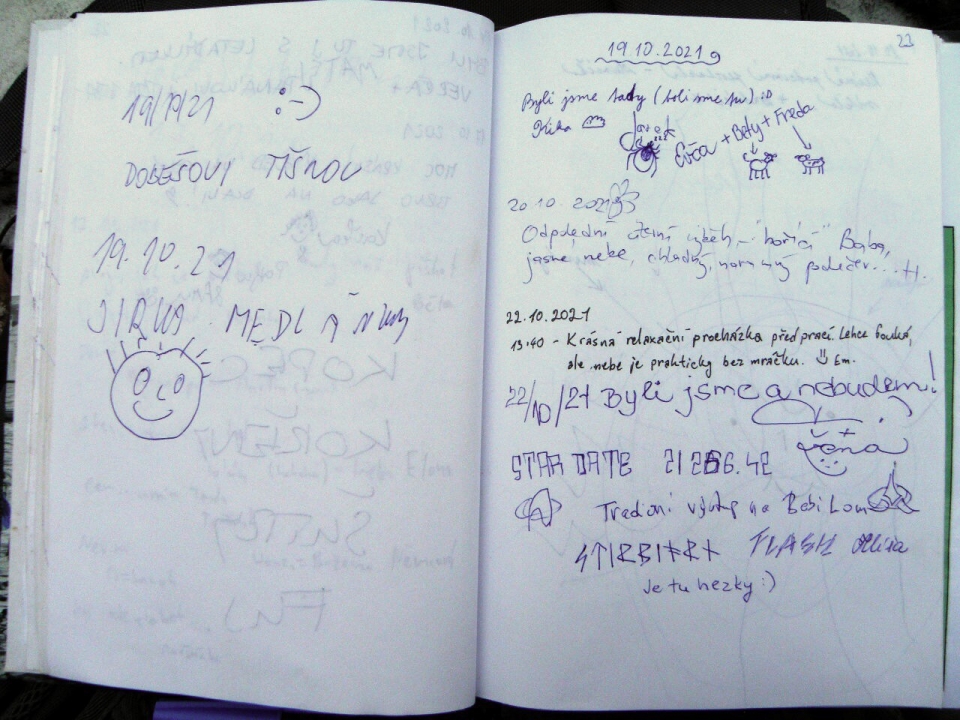 19/10/21 :-)
DOBEŠOVI TIŠNOV
19.10.21
JIRKA MEDLÁNKY
23
19.10.2021
Byli jsme tady (boli sme tu) :D
Evča + Bety + Freda
20.10.2021
Odpolední výběh - "hořící" Baba,
jasné nebe, chladný, podvečer... H.
22.10.2021
13:40 - Krásná relaxační procházka před prací. Lehce fouká,
ale nebe je prakticky bez mráčku. Em.
22/10/21 Byli jsme a nebudem!
STAR DATE 21286.42
Tradiční výstup na Babí Lom
FLASH
Je tu hezky :)